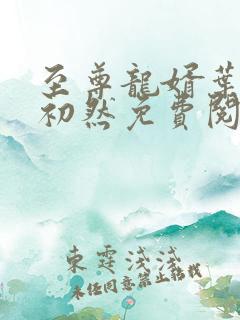 至尊龍婿葉
初然免費閱
東霆淺淺
未任同意禁止轉載